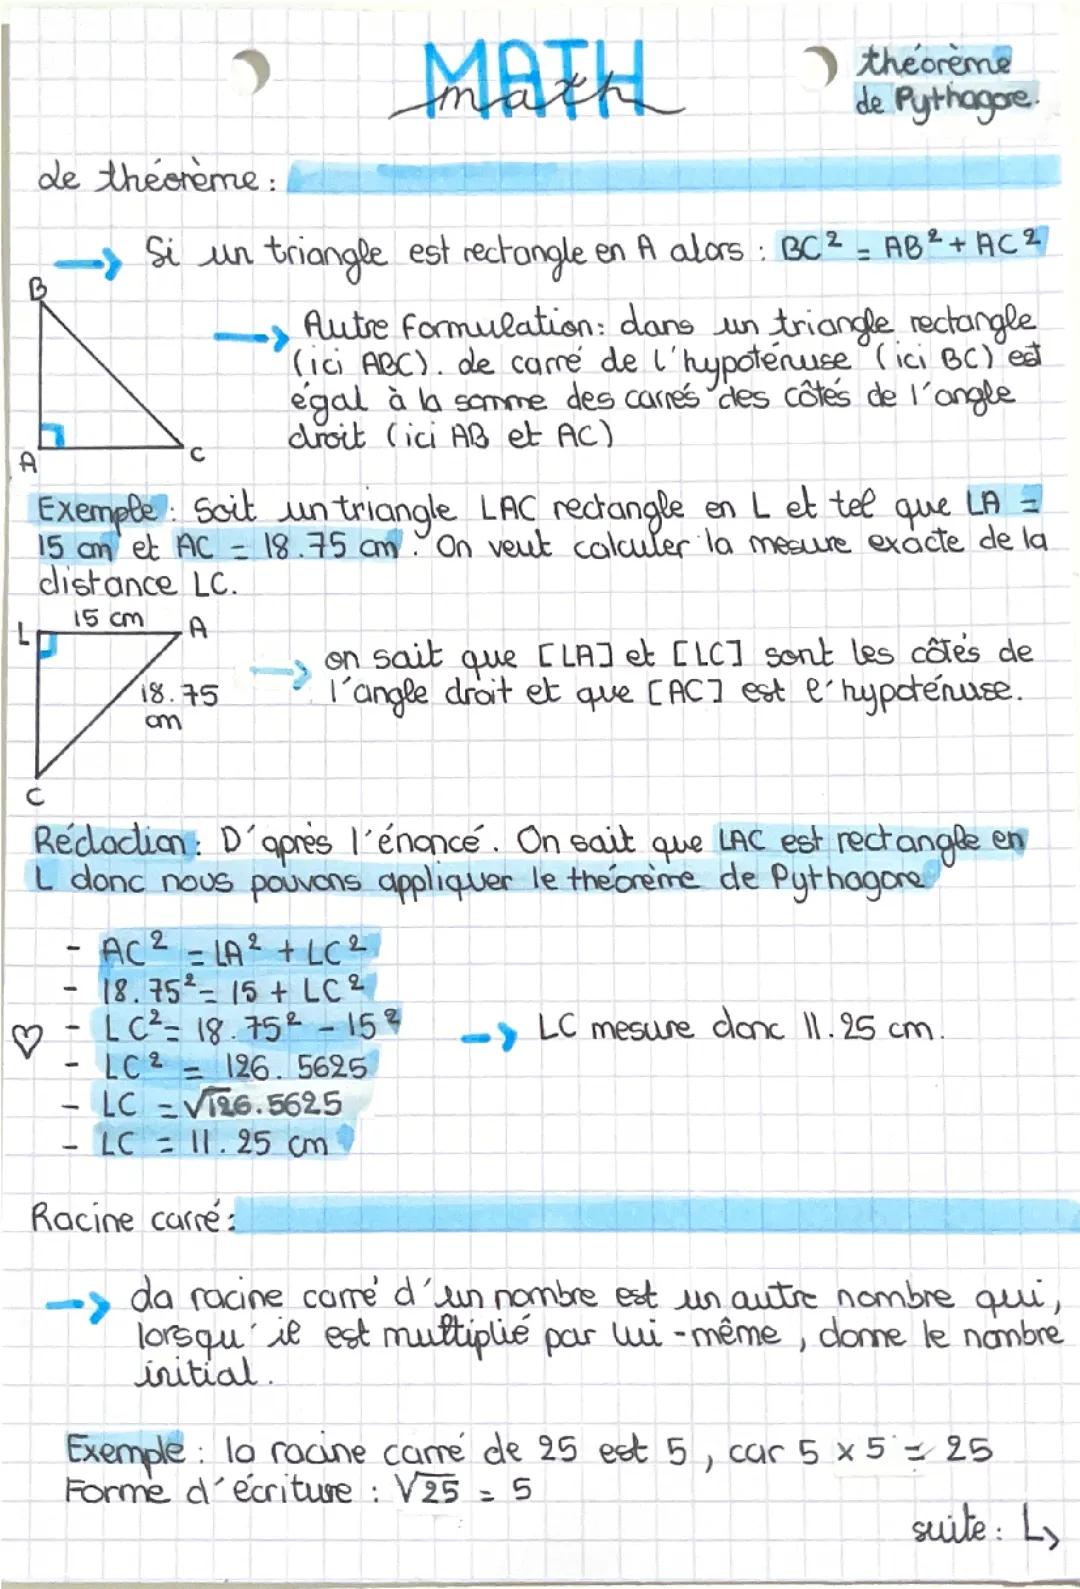 MATH
math
théorème
de Pythagore.
Le théorème :
Si un triangle est rectangle en A alors : BC² = AB² + AC²
B
A
C
Autre formulation : dans un triangle rectangle
(ici ABC). Le carré de l'hypoténuse (ici BC) est
égal à la somme des carrés des côtés de l'angle
droit (ici AB et AC)
Exemple : Soit un triangle LAC rectangle en L et tel que LA =
15 cm et AC = 18.75 cm. On veut calculer la mesure exacte de la
distance LC.
15 cm
L
A
18.75
cm
C
on sait que [LA] et [LC] sont les côtés de
l'angle droit et que [AC] est l'hypoténuse.
Rédaction : D'après l'énoncé. On sait que LAC est rectangle en
L donc nous pouvons appliquer le théorème de Pythagore
- AC² = LA² + LC²
- 18.75² = 15 + LC²
- LC² = 18.75² - 15²
- LC² = 126.5625
- LC = √126.5625
- LC = 11.25 cm
LC mesure donc 11.25 cm.
Racine carré :
La racine carré d'un nombre est un autre nombre qui,
lorsqu'il est multiplié par lui-même, donne le nombre
initial.
Exemple : la racine carré de 25 est 5, car 5 x 5 = 25
Forme d'écriture : √25 = 5
suite :